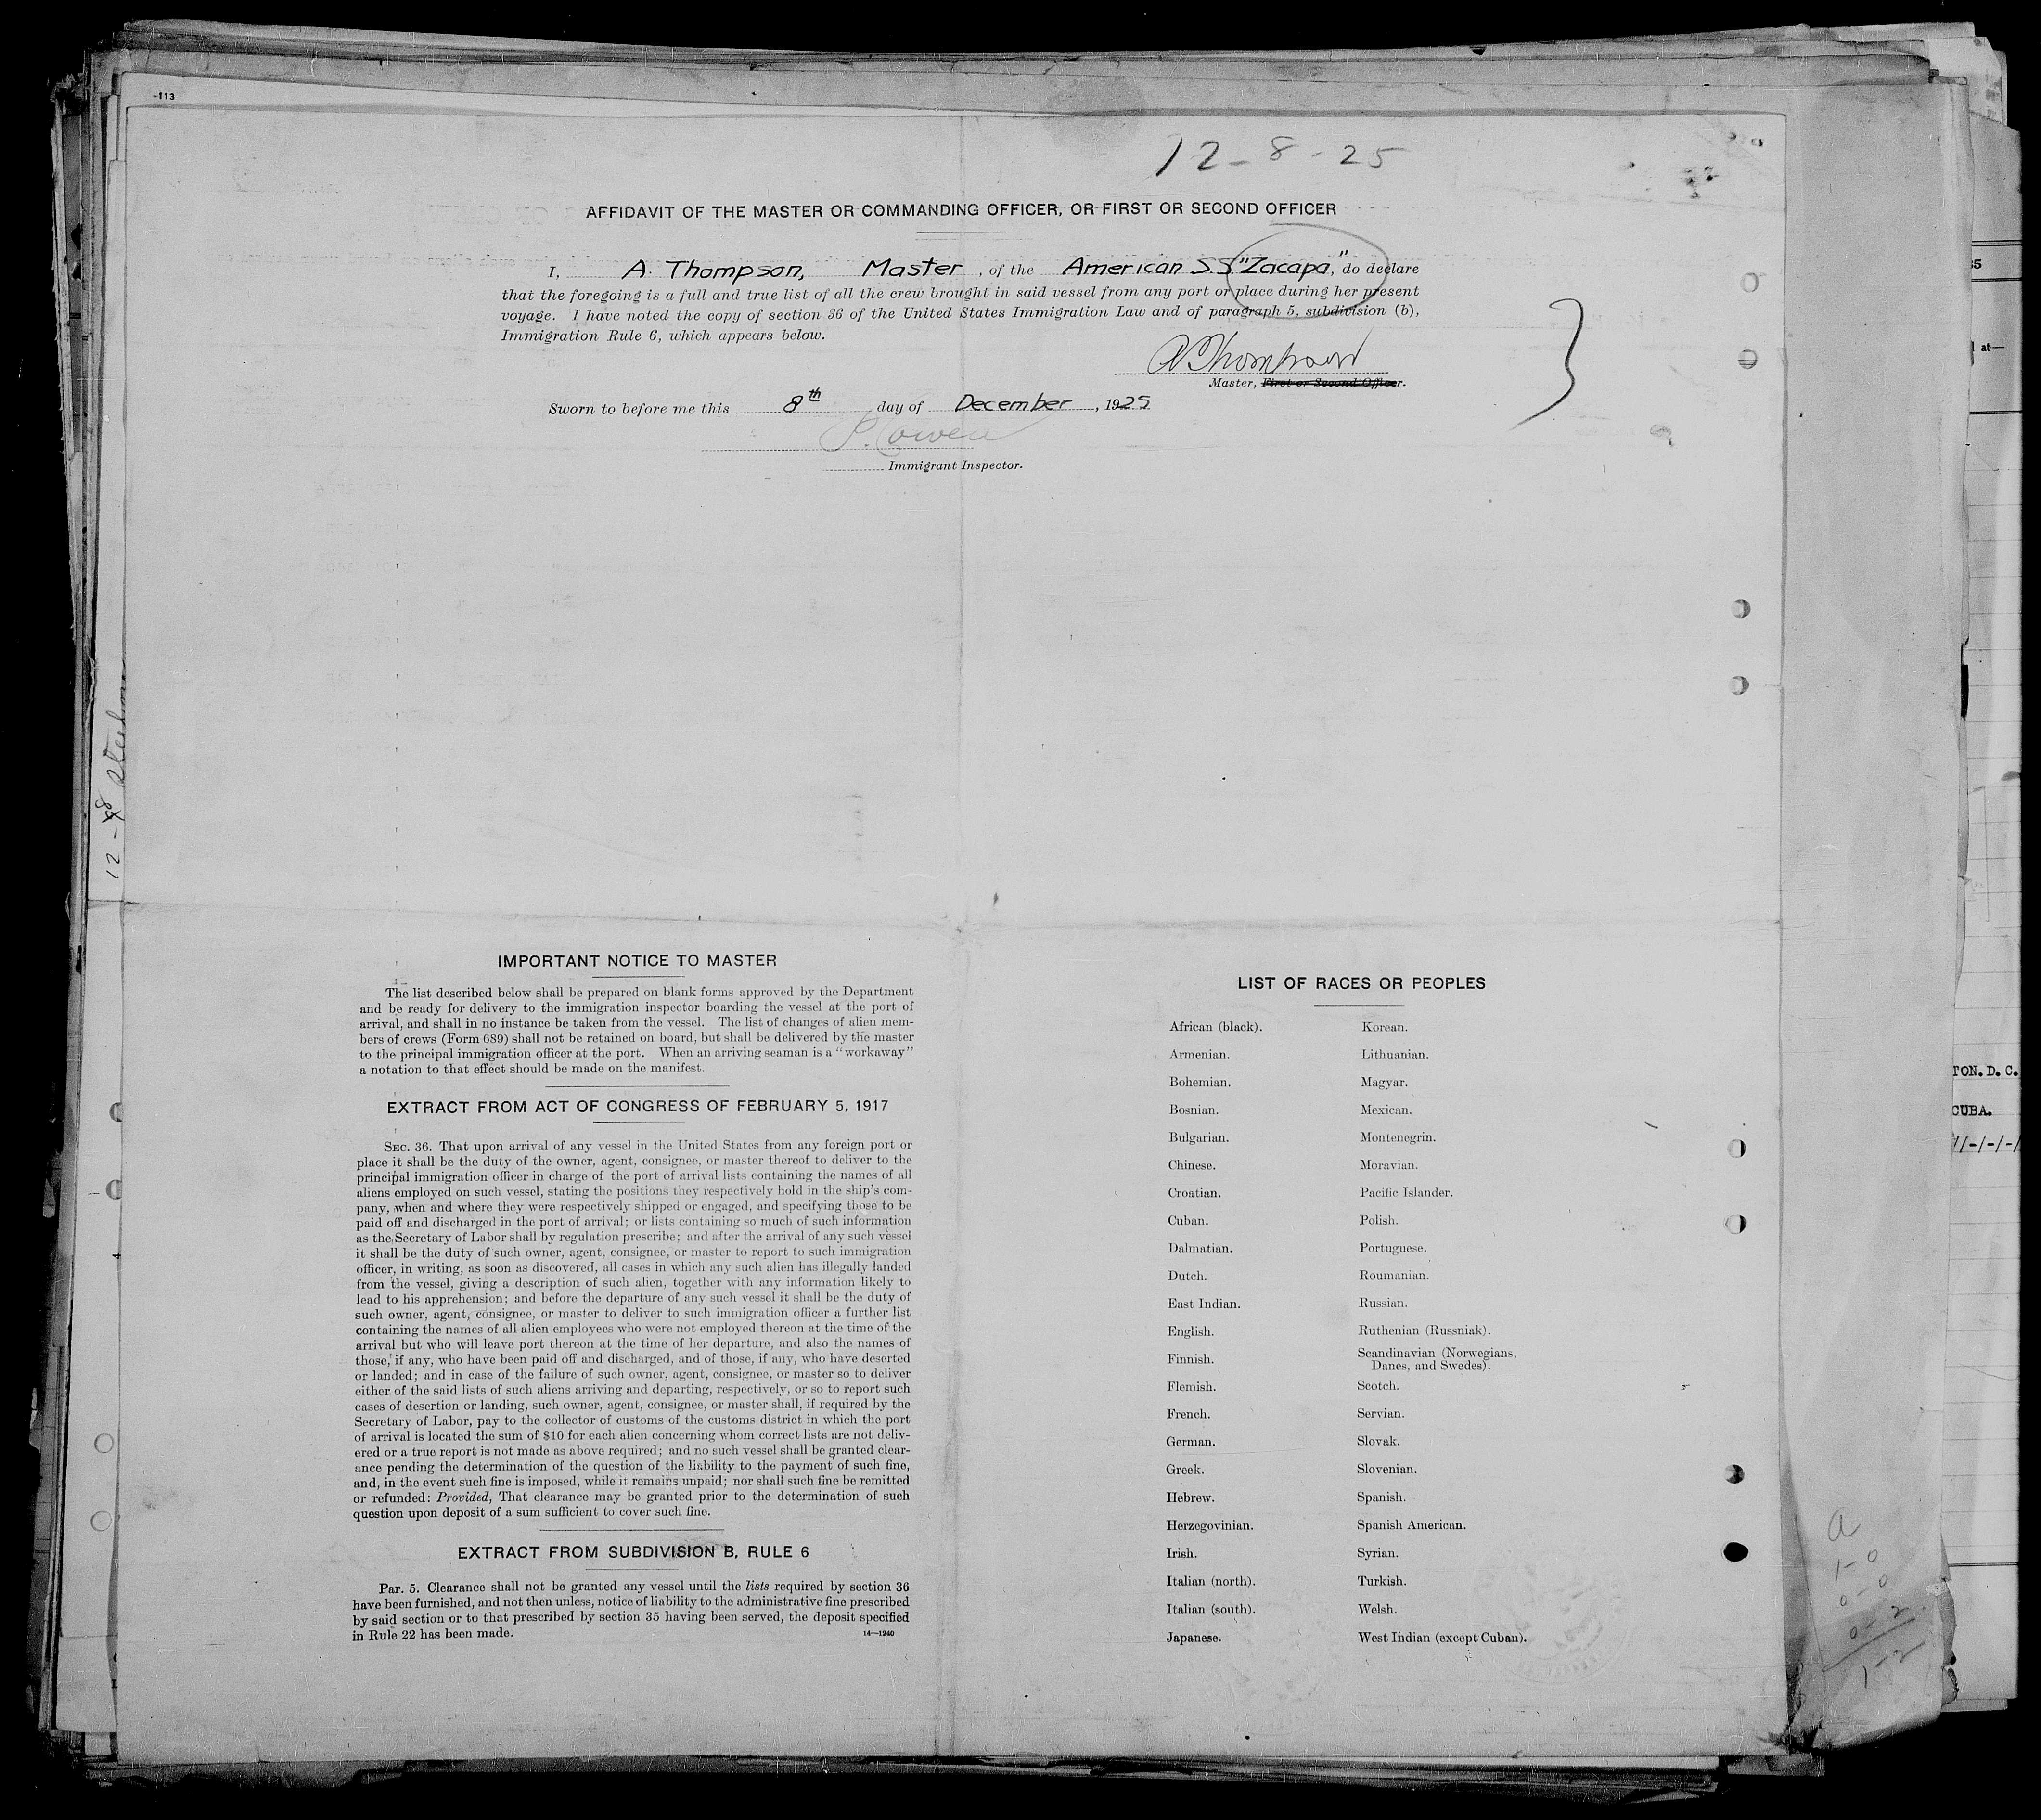 -113
12-8-25
AFFIDAVIT OF THE MASTER OR COMMANDING OFFICER, OR FIRST OR SECOND OFFICER
I, A. Thompson, Master, of the American S.S. "Zacapa," do declare
that the foregoing is a full and true list of all the crew brought in said vessel from any port or place during her present
voyage. I have noted the copy of section 36 of the United States Immigration Law and of paragraph 5, subdivision (b),
Immigration Rule 6, which appears below.
A Thompson
Master, First or Second Officer.
Sworn to before me this 8th day of December, 1925
Immigrant Inspector.
IMPORTANT NOTICE TO MASTER
The list described below shall be prepared on blank forms approved by the Department
and be ready for delivery to the immigration inspector boarding the vessel at the port of
arrival, and shall in no instance be taken from the vessel. The list of changes of alien mem-
bers of crews (Form 689) shall not be retained on board, but shall be delivered by the master
to the principal immigration officer at the port. When an arriving seaman is a "workaway"
a notation to that effect should be made on the manifest.
EXTRACT FROM ACT OF CONGRESS OF FEBRUARY 5, 1917
SEC. 36. That upon arrival of any vessel in the United States from any foreign port or
place it shall be the duty of the owner, agent, consignee, or master thereof to deliver to the
principal immigration officer in charge of the port of arrival lists containing the names of all
aliens employed on such vessel, stating the positions they respectively hold in the ship's com-
pany, when and where they were respectively shipped or engaged, and specifying those to be
paid off and discharged in the port of arrival; or lists containing so much of such information
as the Secretary of Labor shall by regulation prescribe; and after the arrival of any such vessel
it shall be the duty of such owner, agent, consignee, or master to report to such immigration
officer, in writing, as soon as discovered, all cases in which any such alien has illegally landed
from the vessel, giving a description of such alien, together with any information likely to
lead to his apprehension; and before the departure of any such vessel it shall be the duty of
such owner, agent, consignee, or master to deliver to such immigration officer a further list
containing the names of all alien employees who were not employed thereon at the time of the
arrival but who will leave port thereon at the time of her departure, and also the names of
those, if any, who have been paid off and discharged, and of those, if any, who have deserted
or landed; and in case of the failure of such owner, agent, consignee, or master so to deliver
either of the said lists of such aliens arriving and departing, respectively, or so to report such
cases of desertion or landing, such owner, agent, consignee, or master shall, if required by the
Secretary of Labor, pay to the collector of customs of the customs district in which the port
of arrival is located the sum of $10 for each alien concerning whom correct lists are not deliv-
ered or a true report is not made as above required; and no such vessel shall be granted clear-
ance pending the determination of the question of the liability to the payment of such fine,
and, in the event such fine is imposed, while it remains unpaid; nor shall such fine be remitted
or refunded: Provided, That clearance may be granted prior to the determination of such
question upon deposit of a sum sufficient to cover such fine.
EXTRACT FROM SUBDIVISION B, RULE 6
Par. 5. Clearance shall not be granted any vessel until the lists required by section 36
have been furnished, and not then unless, notice of liability to the administrative fine prescribed
by said section or to that prescribed by section 35 having been served, the deposit specified
in Rule 22 has been made.
14—1940
LIST OF RACES OR PEOPLES
African (black). Korean.
Armenian. Lithuanian.
Bohemian. Magyar.
Bosnian. Mexican.
Bulgarian. Montenegrin.
Chinese. Moravian.
Croatian. Pacific Islander.
Cuban. Polish.
Dalmatian. Portuguese.
Dutch. Roumanian.
East Indian. Russian.
English. Ruthenian (Russniak).
Finnish. Scandinavian (Norwegians,
Danes, and Swedes).
Flemish. Scotch.
French. Servian.
German. Slovak.
Greek. Slovenian.
Hebrew. Spanish.
Herzegovinian. Spanish American.
Irish. Syrian.
Italian (north). Turkish.
Italian (south). Welsh.
Japanese. West Indian (except Cuban).
at—
TON. D. C.
CUBA.
a
1-0
0-0
0-2
1-2